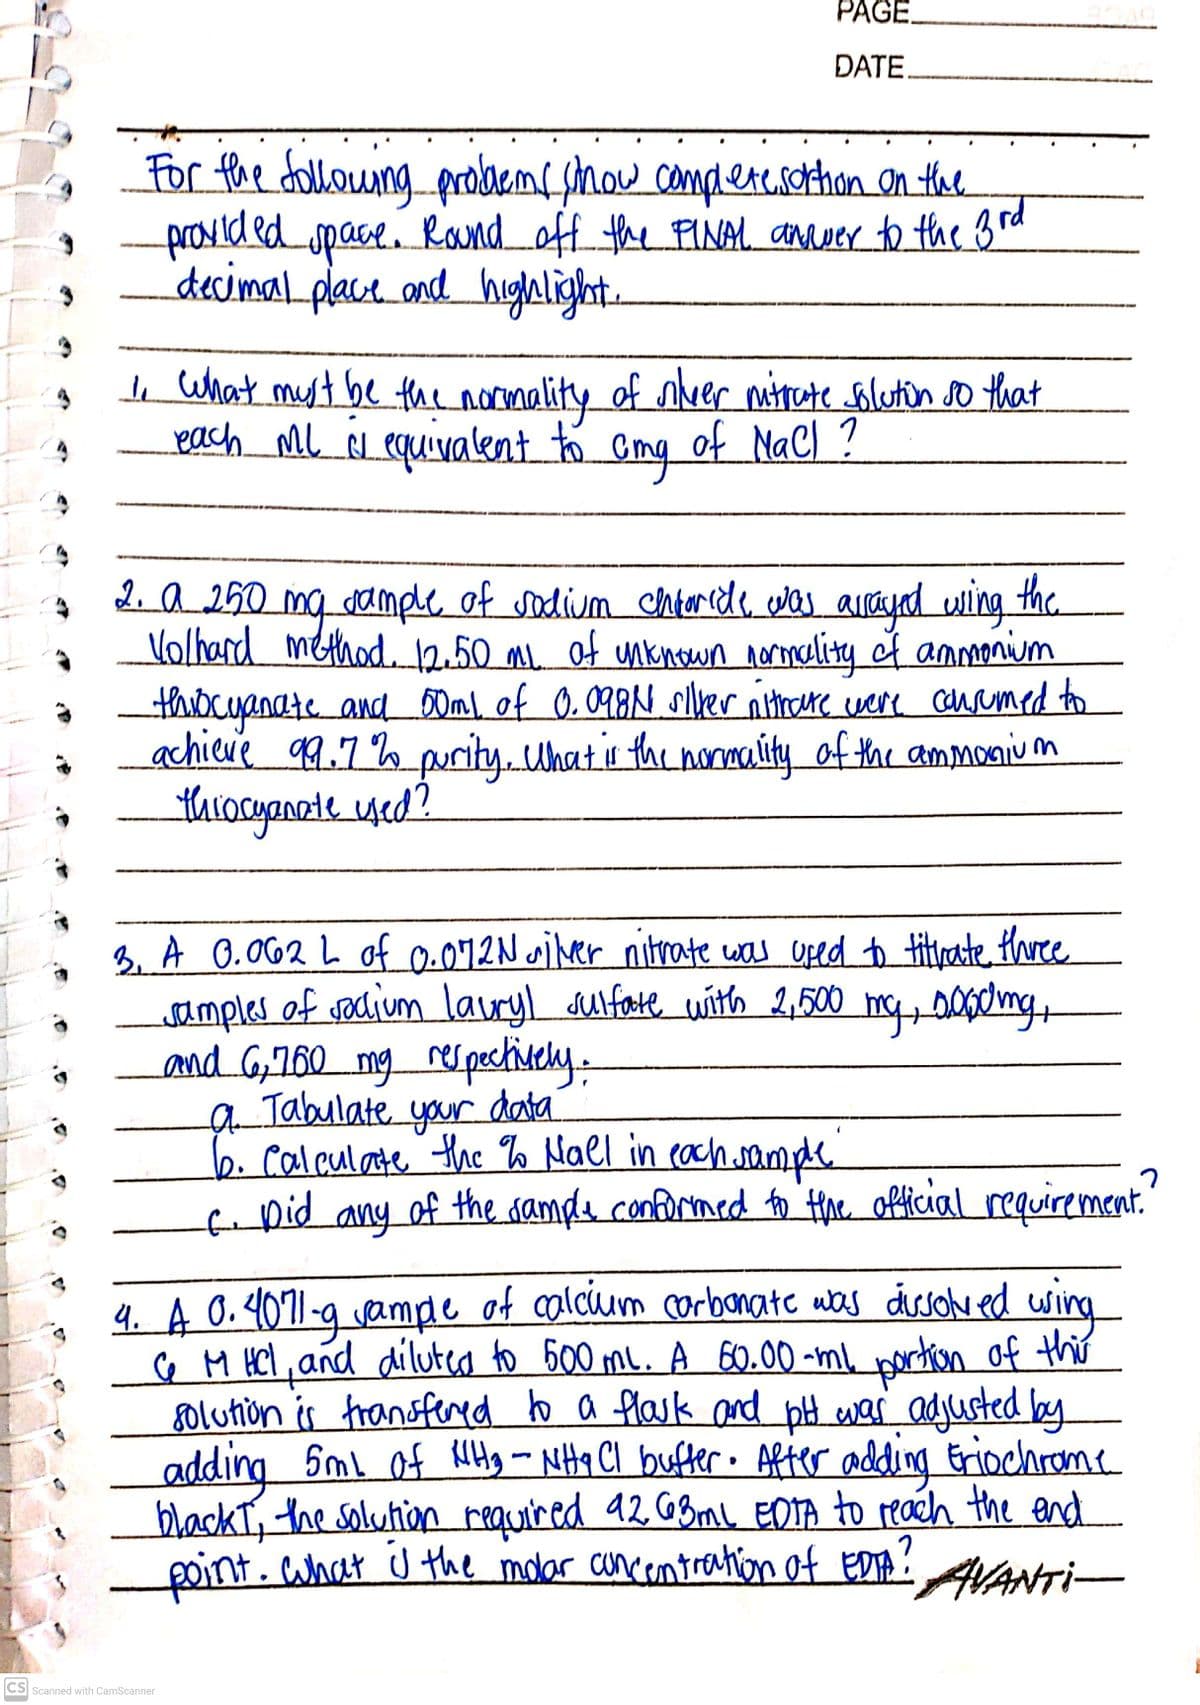 PAGE
DATE
For the following problems show complete solution on the
provided space. Round off the FINAL answer to the 3rd
decimal place and highlight.
1. What must be the normality of silver nitrate solution so that
each mL is equivalent to 6mg of NaCl ?
2. A 250 mg sample of sodium chloride was assayed using the
Volhard method. 12.50 mL of unknown normality of ammonium
thiocyanate and 50mL of 0.098N silver nitrate were consumed to
achieve 99.7 % purity. What is the normality of the ammonium
thiocyanate used?
3. A 0.062 L of 0.072N silver nitrate was used to titrate three
samples of sodium lauryl sulfate with 2,500 mg,
and 6,760 mg respectively.
a. Tabulate your data
b. Calculate the % NaCl in each sample
c. Did any of the sample conformed to the official requirement?
4. A 0.4071-g sample of calcium carbonate was dissolved using
6 M HCl, and diluted to 500 mL. A 50.00-mL portion of this
solution is transferred to a flask and pH was adjusted by
adding 5mL of NH3-NH4Cl buffer. After adding Eriochrome
black T, the solution required 42.63mL EDTA to reach the end
point. What is the molar concentration of EDTA?
AVANTi
CS Scanned with CamScanner